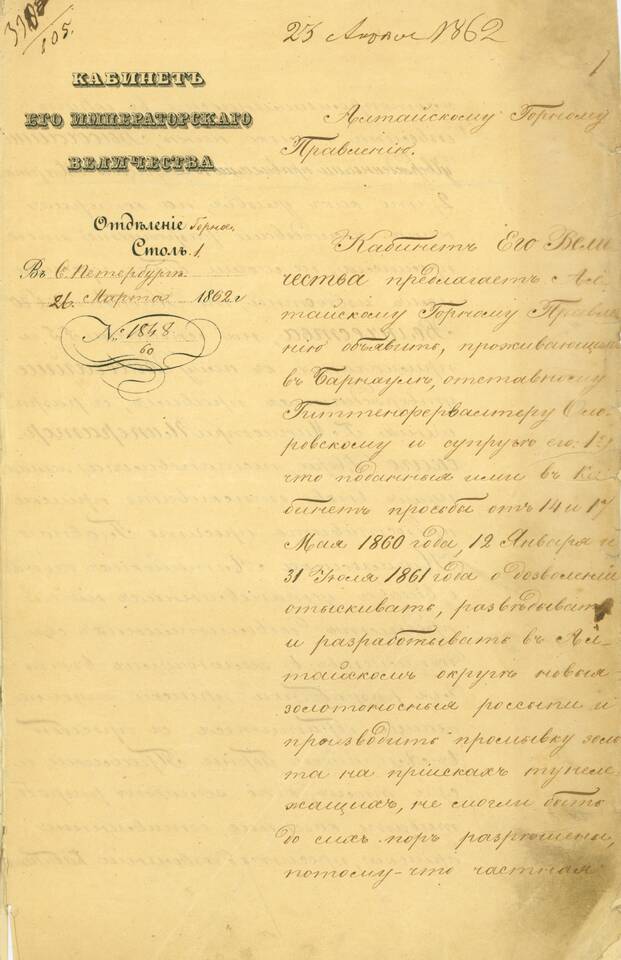 105.
25 Апреля 1862
1
КАБИНЕТЪ
ЕГО ИМПЕРАТОРСКАГО
ВЕЛИЧЕСТВА
Отдѣленіе Горное.
Столъ 1.
Въ С. Петербургѣ
26. Марта 1862 г
№ 1848.
60
Алтайскому Горному
Правленію.
Кабинетъ Его Вели
чества предлагаетъ Ал-
тайскому Горному Правле
нію объявить, проживающимъ
въ Барнаулѣ, отставному
Гиттенфервалтеру
ровскому и супругѣ его:
что поданныя ими въ Ка
бинетъ просьбы отъ 14 и 17
Мая 1860 года, 12 Января и
31 Іюля 1861 года о дозволеніи
отыскивать, развѣдывать
и разработывать въ Ал-
тайскомъ округѣ новыя
золотоносныя россыпи и
производить промывку золо
та на пріискахъ тунеле
жащихъ, не могли быть
до сихъ поръ разрѣшены,
потому-что частная